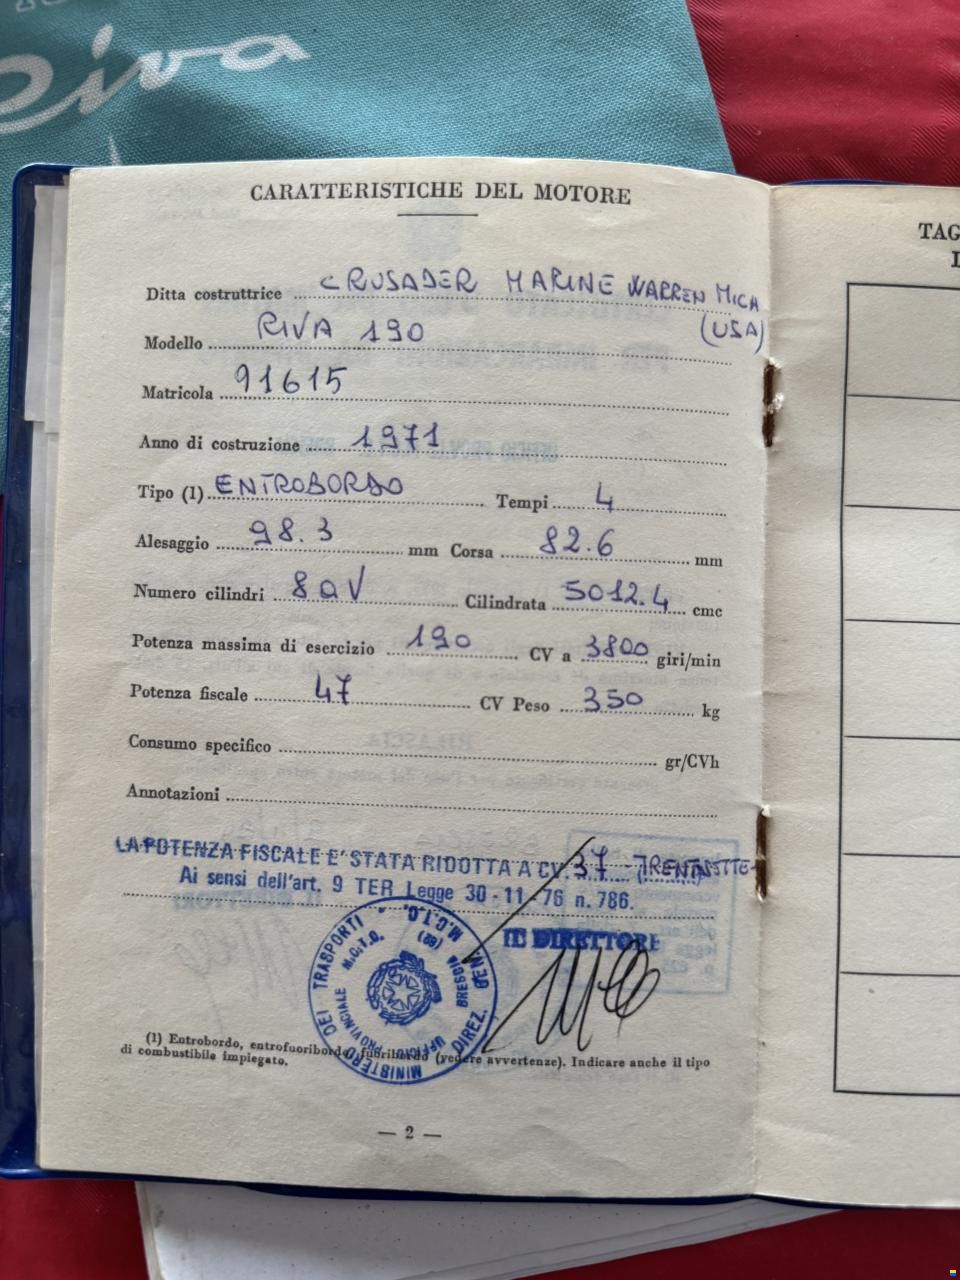 Riva
CARATTERISTICHE DEL MOTORE
Ditta costruttrice CRUSADER MARINE WARREN MICH
(USA)
Modello RIVA 190
Matricola 91615
Anno di costruzione 1971
Tipo (1) ENTROBORDO Tempi 4
Alesaggio 98.3 mm Corsa 82.6 mm
Numero cilindri 8 a V Cilindrata 5012.4 cmc
Potenza massima di esercizio 190 CV a 3800 giri/min
Potenza fiscale 47 CV Peso 350 kg
Consumo specifico gr/CVh
Annotazioni
LA POTENZA FISCALE E' STATA RIDOTTA A CV. 37 - TRENTASETTE-
Ai sensi dell'art. 9 TER Legge 30-11-76 n. 786.
IL DIRETTORE
MINISTERO DEI TRASPORTI DIREZ. GEN. M.C.T.C.
UFFICIO PROVINCIALE M.C.T.C. BRESCIA
(1) Entrobordo, entrofuoribordo, fuoribordo (vedere avvertenze). Indicare anche il tipo
di combustibile impiegato.
— 2 —
TAG